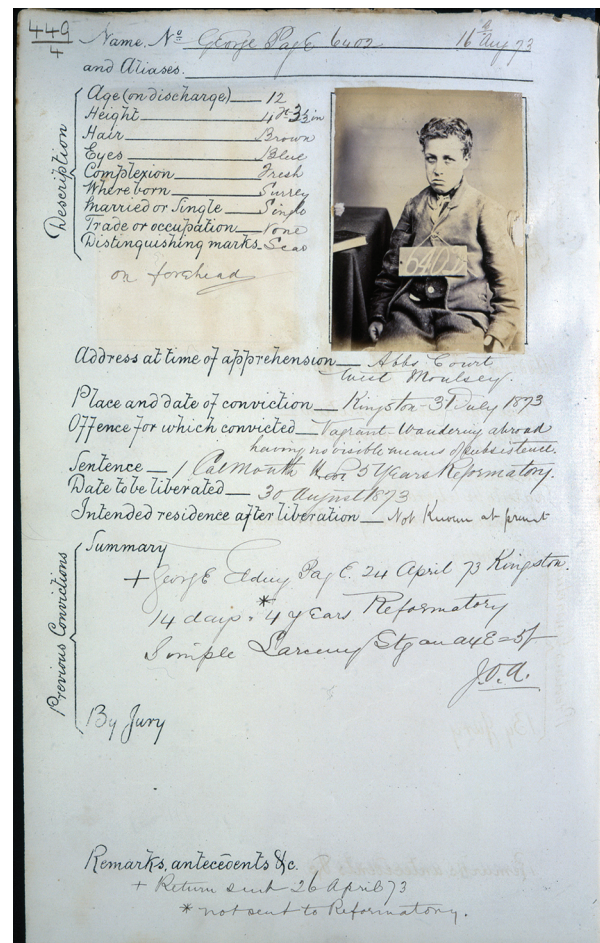 449
4
Name, No. George Page 6402 16th Aug 73
and Aliases.
Description
Age (on discharge) 12
Height 4 ft 3½ in
Hair Brown
Eyes Blue
Complexion Fresh
Where born Surrey
Married or Single Single
Trade or occupation None
Distinguishing marks Scar
on forehead
6402
Address at time of apprehension Abbs Court
West Moulsey.
Place and date of conviction Kingston 31 July 1873
Offence for which convicted Vagrant Wandering abroad
having no visible means of subsistence.
Sentence 1 Cal Month 5 Years Reformatory.
Date to be liberated 30 August 1873
Intended residence after liberation Not Known at present
Previous Convictions
Summary
+ George Page. 24 April 73 Kingston.
* 14 days & 4 years Reformatory
Simple Larceny
By Jury
Remarks, antecedents &c.
+ Return sent 26 April 73
* not sent to Reformatory.